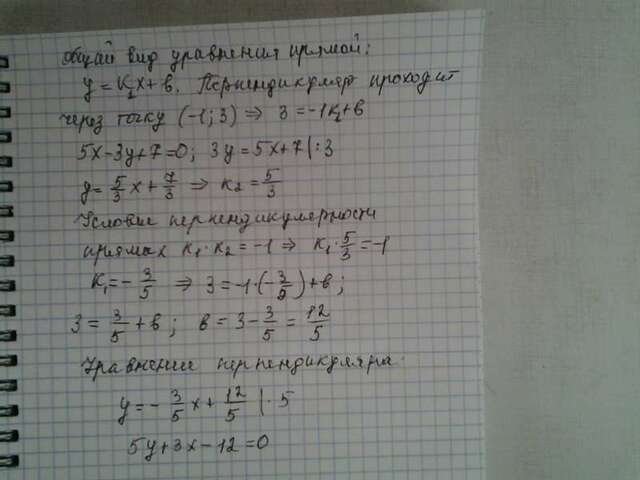 Общий вид уравнения прямой:
y = K₁x + в. Перпендикуляр проходит
через точку (-1; 3) ⇒ 3 = -1K₁ + в
5x - 3y + 7 = 0; 3y = 5x + 7 |: 3
y = 5/3 x + 7/3 ⇒ K₂ = 5/3
Условие перпендикулярности
прямых K₁ · K₂ = -1 ⇒ K₁ · 5/3 = -1
K₁ = - 3/5 ⇒ 3 = -1 · (- 3/5) + в;
3 = 3/5 + в; в = 3 - 3/5 = 12/5
Уравнение перпендикуляра:
y = - 3/5 x + 12/5 | · 5
5y + 3x - 12 = 0